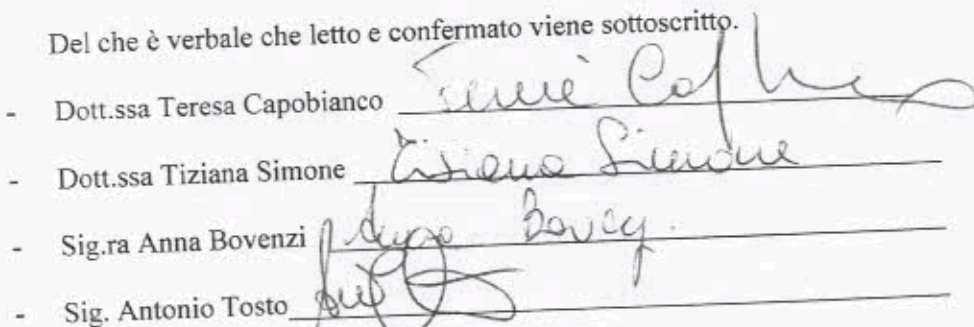 Del che è verbale che letto e confermato viene sottoscritto.
- Dott.ssa Teresa Capobianco
- Dott.ssa Tiziana Simone Tiziana Simone
- Sig.ra Anna Bovenzi
- Sig. Antonio Tosto